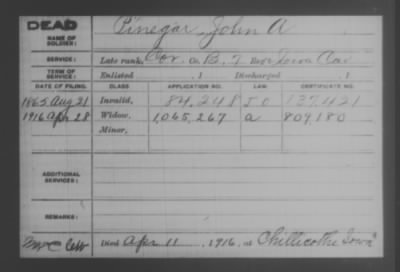 DEAD
NAME OF SOLDIER: Pinegar, John A
SERVICE: Late rank, Cor. Co. B, 7 Reg't Iowa Cav
TERM OF SERVICE: Enlisted , 1 Discharged , 1
DATE OF FILING. CLASS APPLICATION NO. LAW. CERTIFICATE NO.
1865 Aug 21 Invalid, 84,248 137,421
1916 Apr 28 Widow, 1,065,267 a 809,180
Minor,
ADDITIONAL SERVICES:
REMARKS:
Died Apr 11, 1916, at Chillicothe Iowa